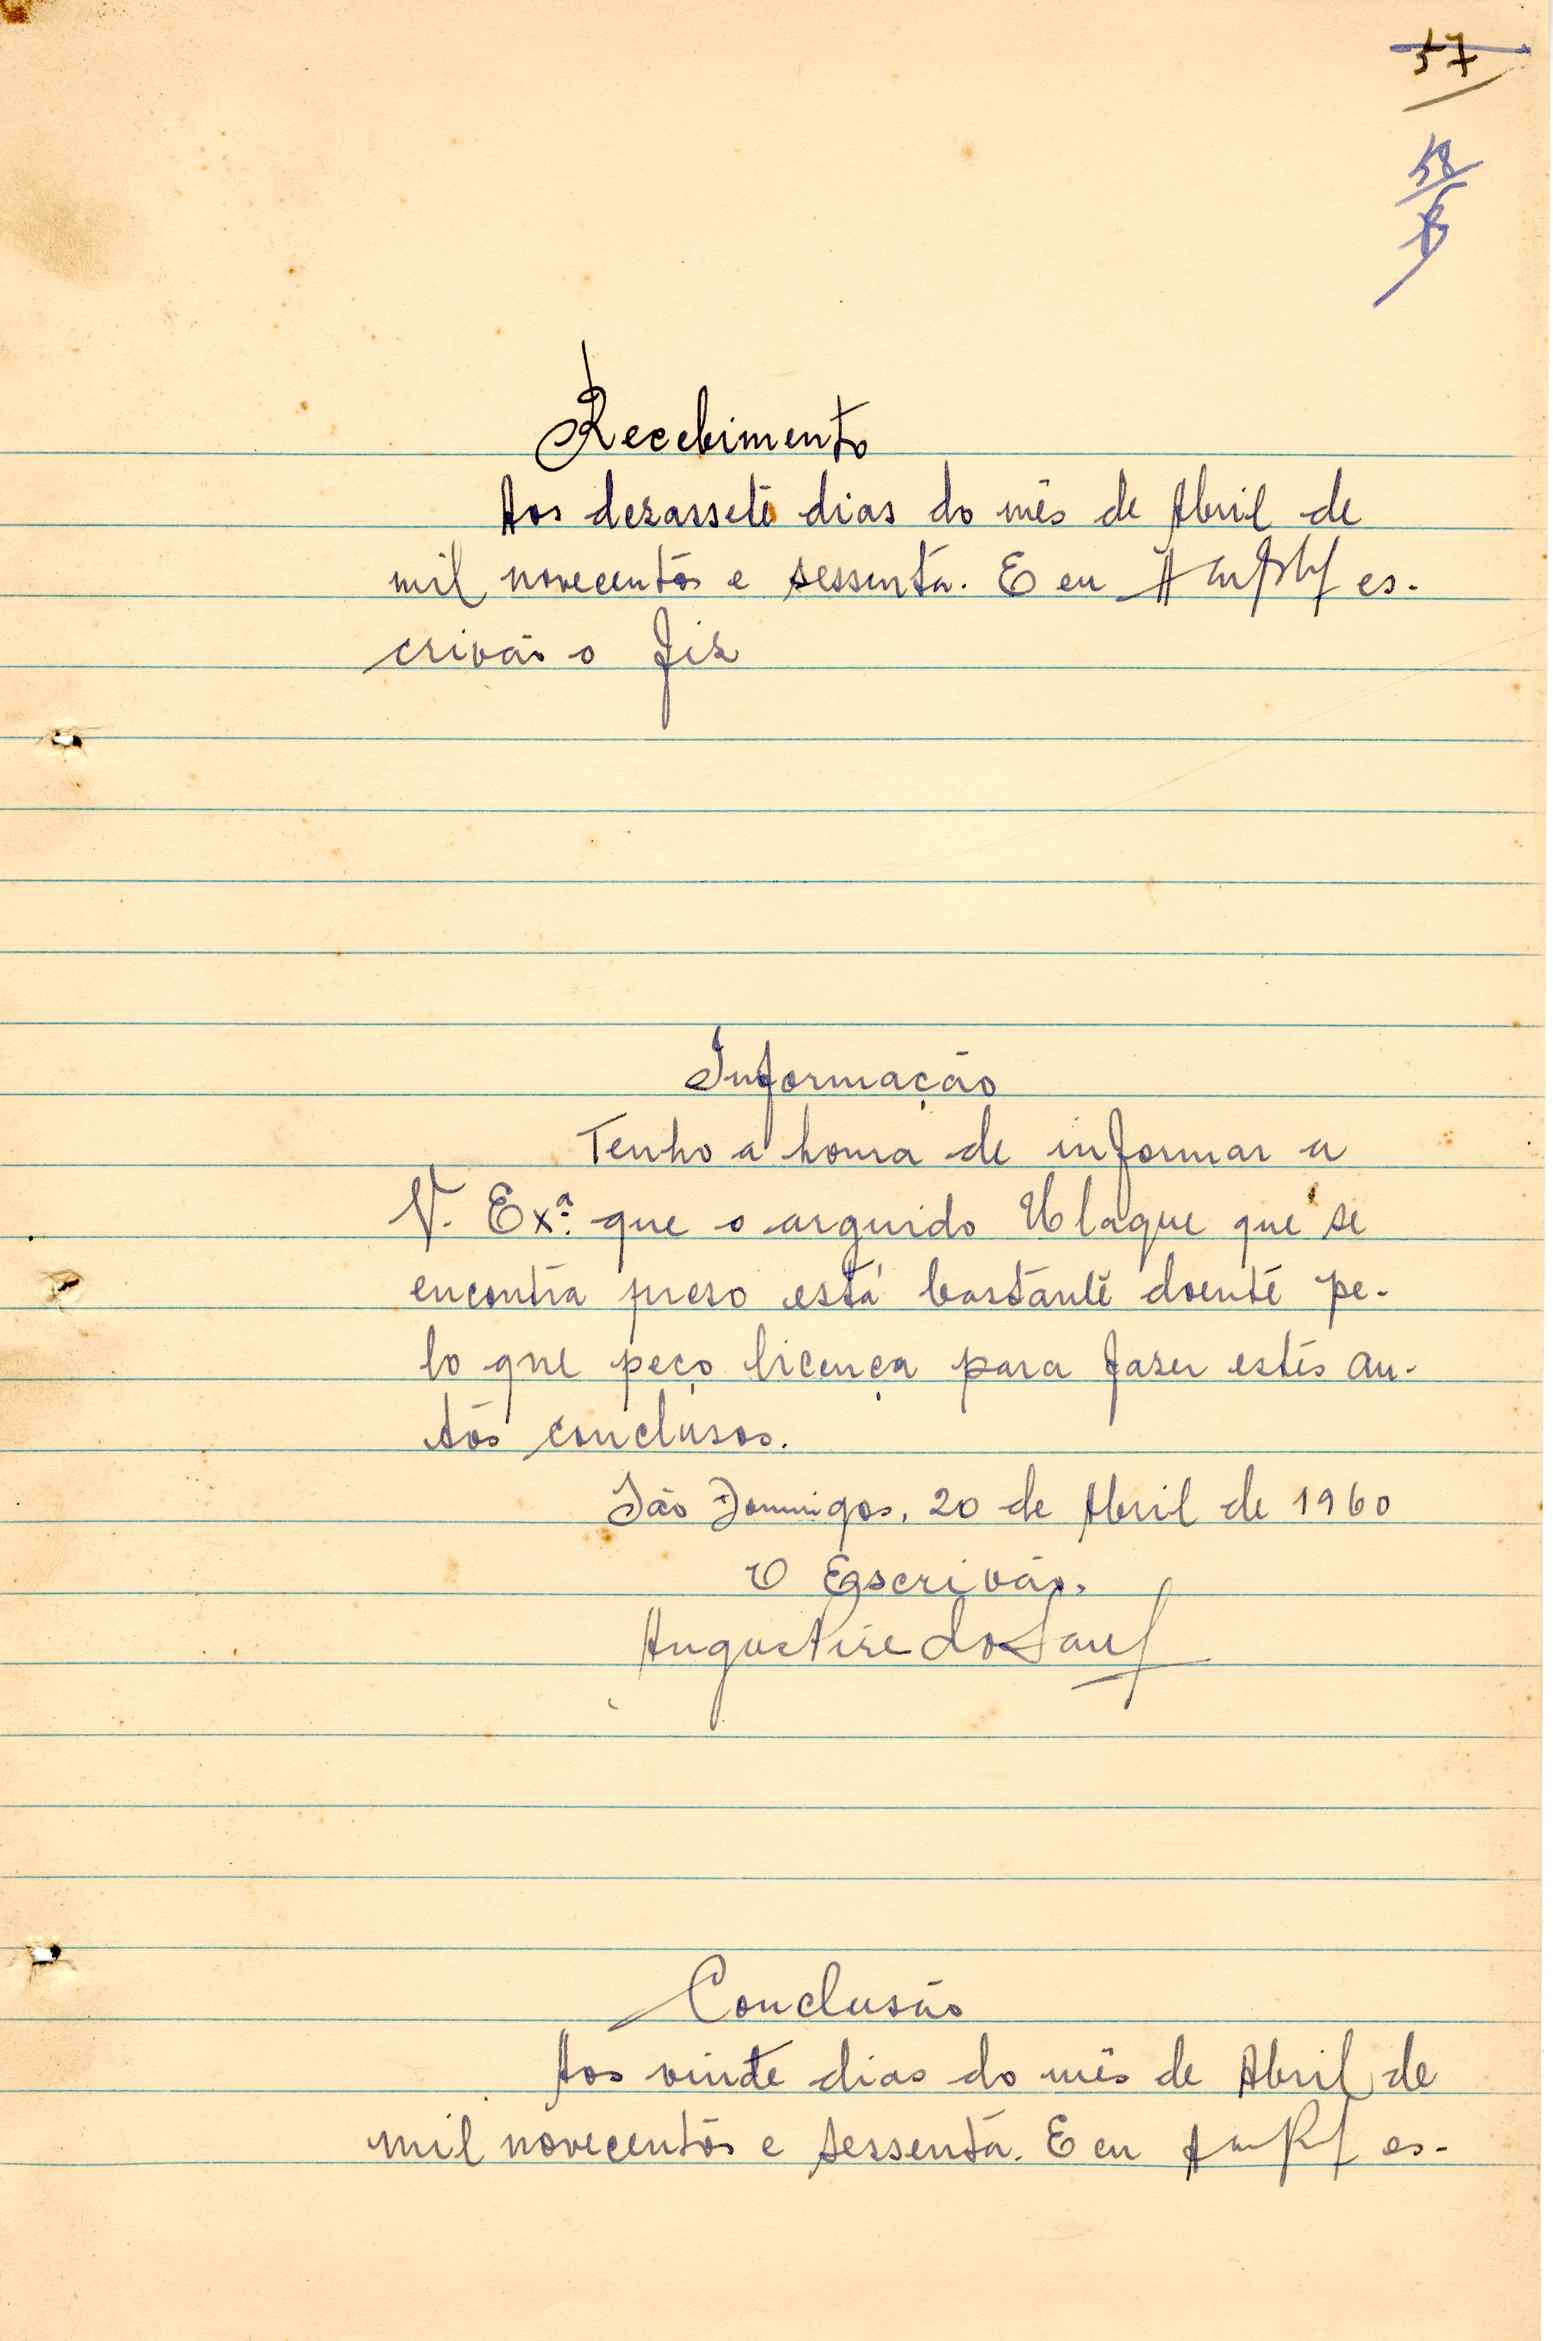 57
58
Recebimento
Aos dezassete dias do mês de Abril de
mil novecentos e sessenta. E eu es-
crivão o fiz
Informação
Tenho a honra de informar a
V. Exª. que o arguido Ulaque que se
encontra preso está bastante doente pe-
lo que peço licença para fazer estes au-
tos conclusos.
São Domingos, 20 de Abril de 1960
O Escrivão,
Conclusão
Aos vinte dias do mês de Abril de
mil novecentos e sessenta. E eu es-